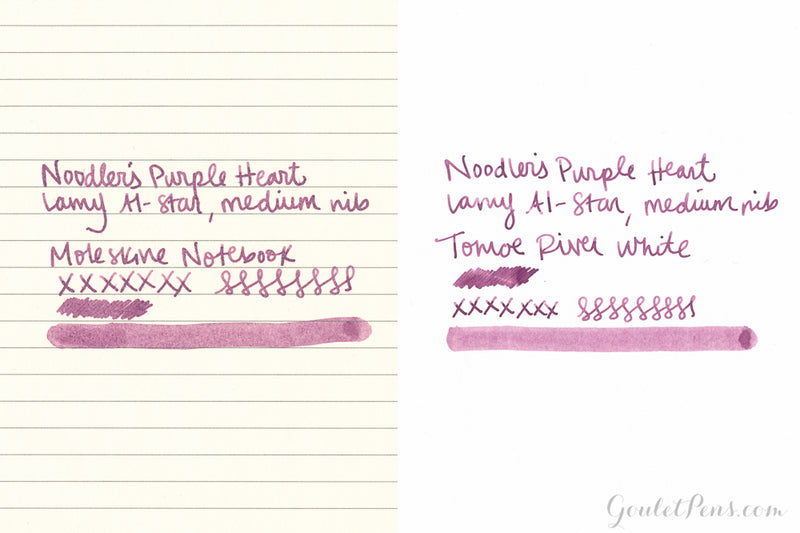 Noodler's Purple Heart
Lamy Al-Star, medium nib
Moleskine Notebook
xxxxxxx sssssssss
Noodler's Purple Heart
Lamy Al-Star, medium nib
Tomoe River White
xxxxxxx sssssssss
GouletPens.com